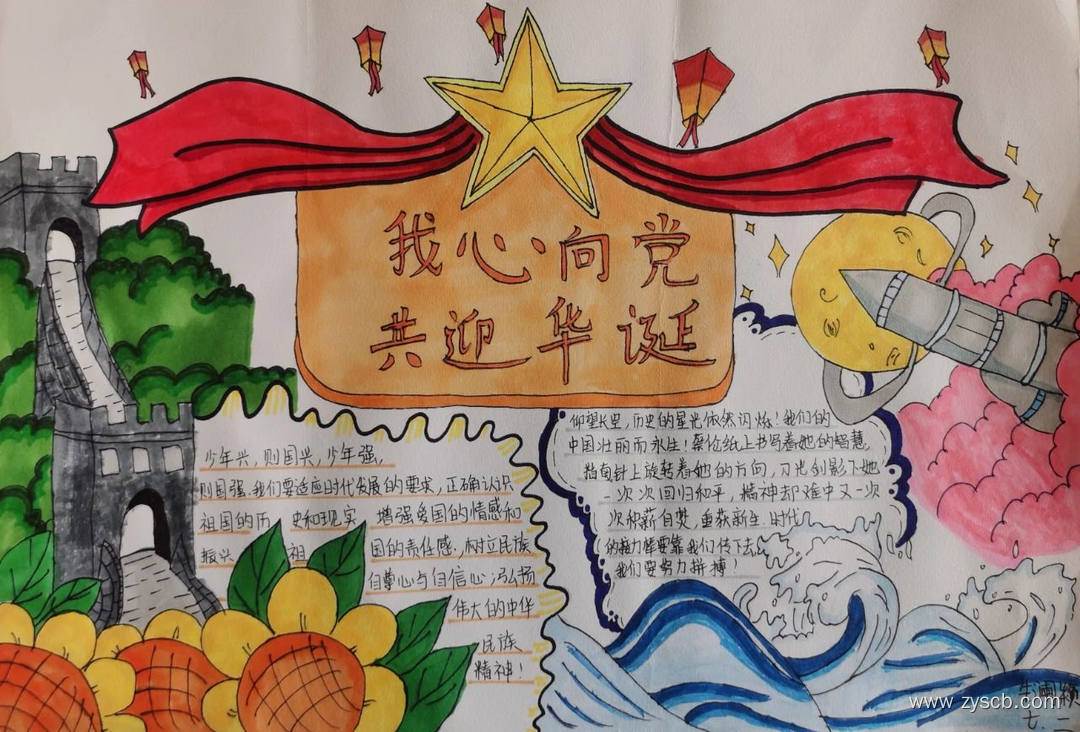 我心向党
共迎华诞
少年兴，则国兴，少年强，
则国强.我们要适应时代发展的要求，正确认识
祖国的历 史和现实 增强爱国的情感和
振兴 祖 国的责任感.，树立民族
自尊心与自信心；弘扬
伟大的中华
民族
精神！
仰望长空，历史的星光依然闪烁！我们的
中国壮丽而永生！蔡伦纸上书写着她的智慧
指南针上旋转着她的方向，刀光剑影下她
一次次回归和平，精神却难中又一次
次积薪自焚，重获新生.时代
的接力棒要靠我们传下去，
我们要努力拼搏！
七.二
www.zyscb.com